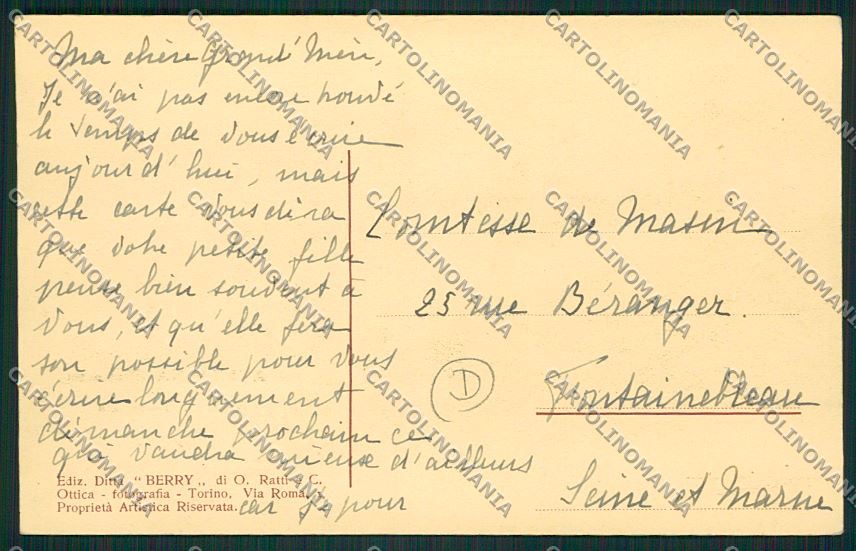 Ma chère Grand'Mère,
Je n'ai pas encore trouvé
le temps de vous écrire
aujourd'hui, mais
cette carte vous dira
que votre petite fille
pense bien souvent à
vous, et qu'elle fera
son possible pour vous
écrire longuement
dimanche prochain ce
qui vaudra mieux d'ailleurs
car je pour
Comtesse de Masin
25 rue Béranger.
Fontainebleau
Seine et Marne
D
Ediz. Ditta "BERRY„ di O. Ratti & C.
Ottica - fotografia - Torino, Via Roma,
Proprietà Artistica Riservata.
CARTOLINOMANIA